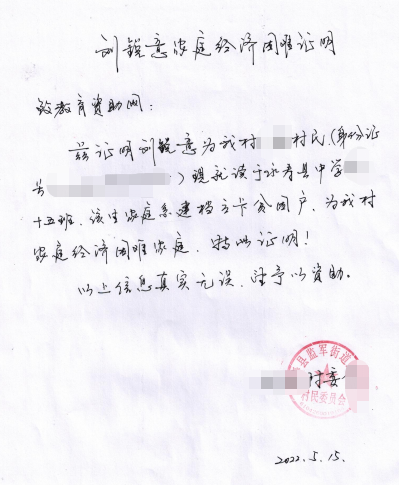 刘锐意家庭经济困难证明
致教育资助网:
兹证明刘锐意为我村 村民(身份证
号 )现就读于永寿县中学
十五班、该生家庭系建档立卡贫困户、为我村
家庭经济困难家庭、特此证明!
以上信息真实无误、望予以资助。
县监军街道
村委
村民委员会
2022.5.15.